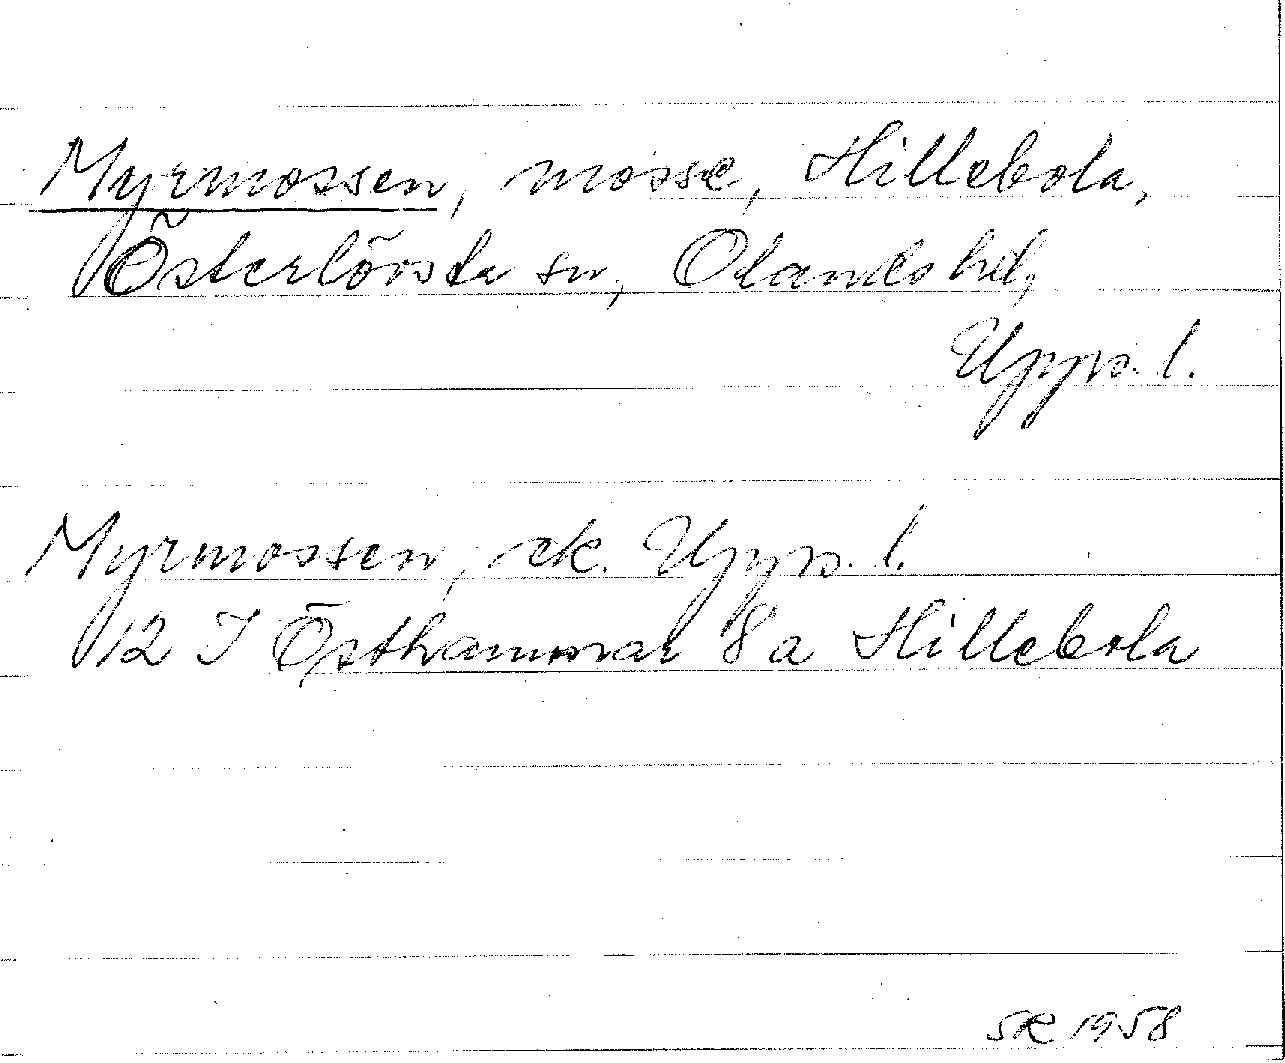 Myrmossen, mosse, Hillebola,
Österlövsta sn, Olands hd,
Upps. l.
Myrmossen, ek. Upps. l.
12 I Östhammar 8a Hillebola
SR 1958